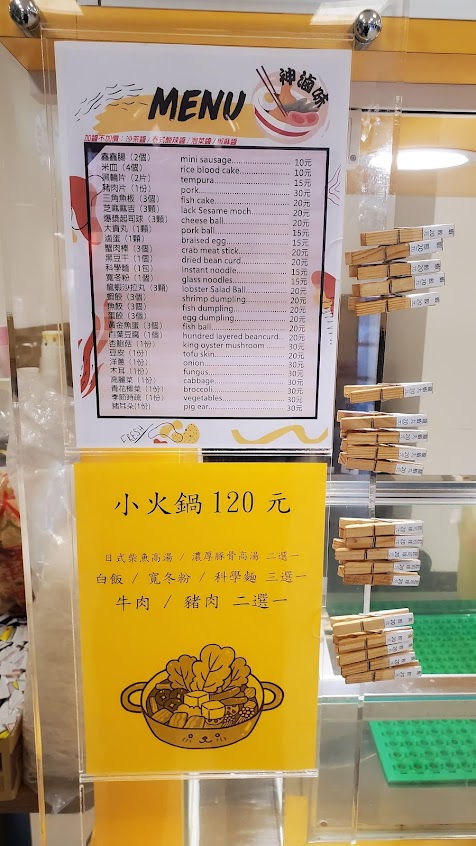 MENU
神滷味
加醬不加價：沙茶醬 / 泰式酸辣醬 / 泡菜醬 / 椒麻醬
鑫鑫腸（2個） mini sausage 10元
米血（4個） rice blood cake 10元
黑輪片（2片） tempura 15元
豬肉片（1份） pork 30元
三角魚板（3個） fish cake 20元
芝麻麻吉（3顆） lack Sesame moch 20元
爆漿起司球（3顆） cheese ball 20元
大貢丸（1顆） pork ball 15元
滷蛋（1顆） braised egg 15元
蟹肉棒（3個） crab meat stick 20元
黑豆干（1個） dried bean curd 20元
科學麵（1包） Instant noodle 15元
寬冬粉（1個） glass noodles 15元
龍蝦沙拉丸（3顆） lobster Salad Ball 20元
蝦餃（3個） shrimp dumpling 20元
魚餃（3個） fish dumpling 20元
蛋餃（3個） egg dumpling 20元
黃金魚蛋（3個） fish ball 20元
百葉豆腐（1個） hundred layered beancurd 20元
杏鮑菇（1份） king oyster mushroom 30元
豆皮（1份） tofu skin 20元
洋蔥（1份） onion 30元
木耳（1份） fungus 30元
高麗菜（1份） cabbage 30元
青花椰菜（1份） broccoli 30元
季節時蔬（1份） vegetables 30元
豬耳朵(1份) pig ear 30元
FRESH
小火鍋 120 元
日式柴魚高湯 / 濃厚豚骨高湯 二選一
白飯 / 寬冬粉 / 科學麵 三選一
牛肉 / 豬肉 二選一